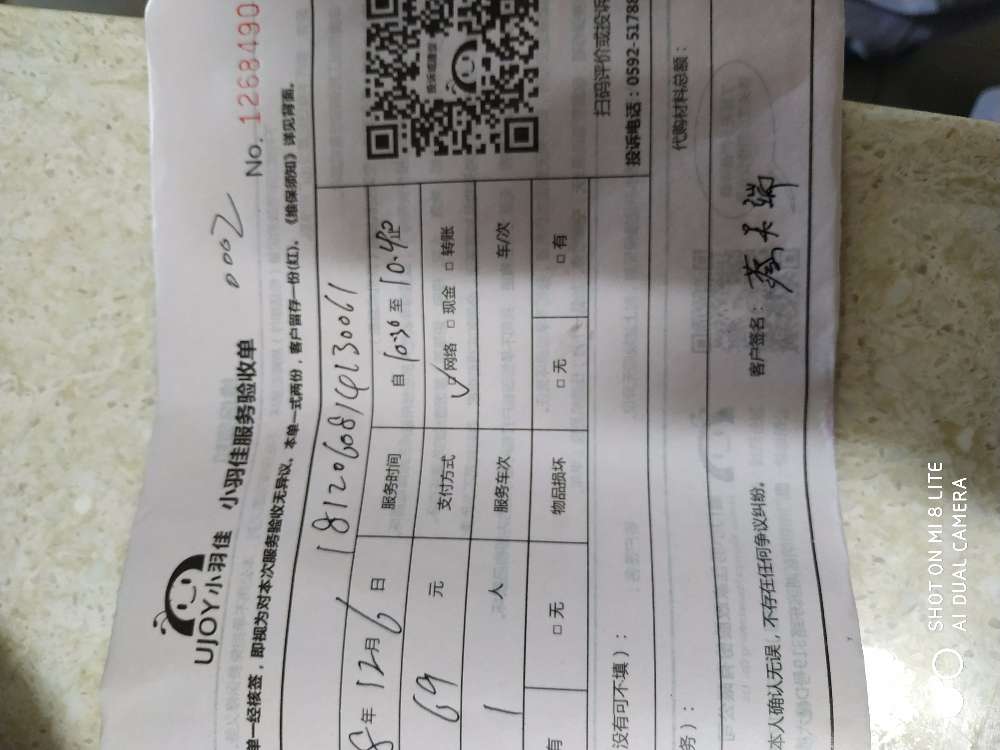 UJOY小羽佳 小羽佳服务验收单
0002
No. 1268490
单一经核签，即视为对本次服务验收无异议、本单一式两份，客户留存一份(红)。《维保须知》详见背面。
18120608141230061
8年 12月 6日 服务时间 自 10:30 至 10.40
69 元 支付方式 ☑ 网络 □ 现金 □ 转账
1 人 服务车次 车/次
有 □ 无 物品损坏 □ 无 □ 有
没有可不填）：
扫码评价或投诉
投诉电话：0592-5178
务）：
代购材料总额：
本人确认无误，不存在任何争议纠纷。
客户签名：
SHOT ON MI 8 LITE
AI DUAL CAMERA